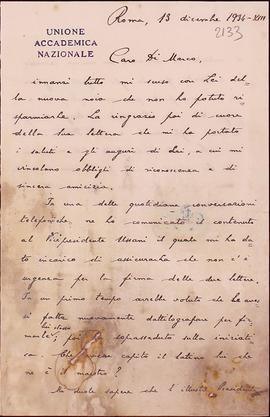 Roma, 13 dicembre 1934-XIII
2133
UNIONE
ACCADEMICA
NAZIONALE
Caro Di Marco,
innanzi tutto mi scuso con Lei del-
la nuova noia che non ho potuto ri-
sparmiarle. La ringrazio poi di cuore
della sua lettera che mi ha portato
i saluti e gli auguri di Lei, a cui mi
vincolano obblighi di riconoscenza e di
sincera amicizia.
In una delle quotidiane conversazioni
telefoniche ne ho comunicato il contenuto
al Vicepresidente Ussani il quale mi ha da-
to incarico di assicurarla che non c'è
urgenza per la firma delle due lettere.
In un primo tempo avrebbe voluto che le aves-
si fatte nuovamente dattilografare per fir-
marle; poi ha soprasseduto sulla iniziati
va. Che avesse capito il latino lui che
ne è maestro?
Mi duole sapere che l'Illustre Presidente